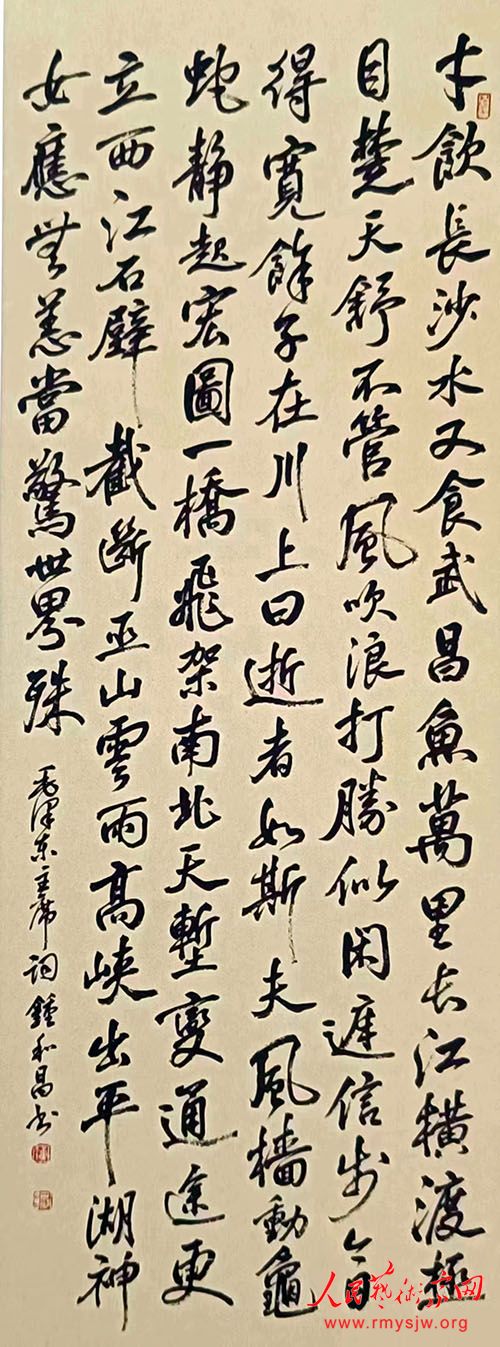 才飲長沙水又食武昌魚萬里长江横渡極
目楚天舒不管風吹浪打勝似闲庭信步今日
得寬餘子在川上曰逝者如斯夫風檣動龜
蛇静起宏圖一橋飛架南北天塹變通途更
立西江石壁截斷巫山雲雨高峡出平湖神
女應無恙當驚世界殊
毛澤东主席词鍾和昌书
人民藝術家网
www.rmysjw.org